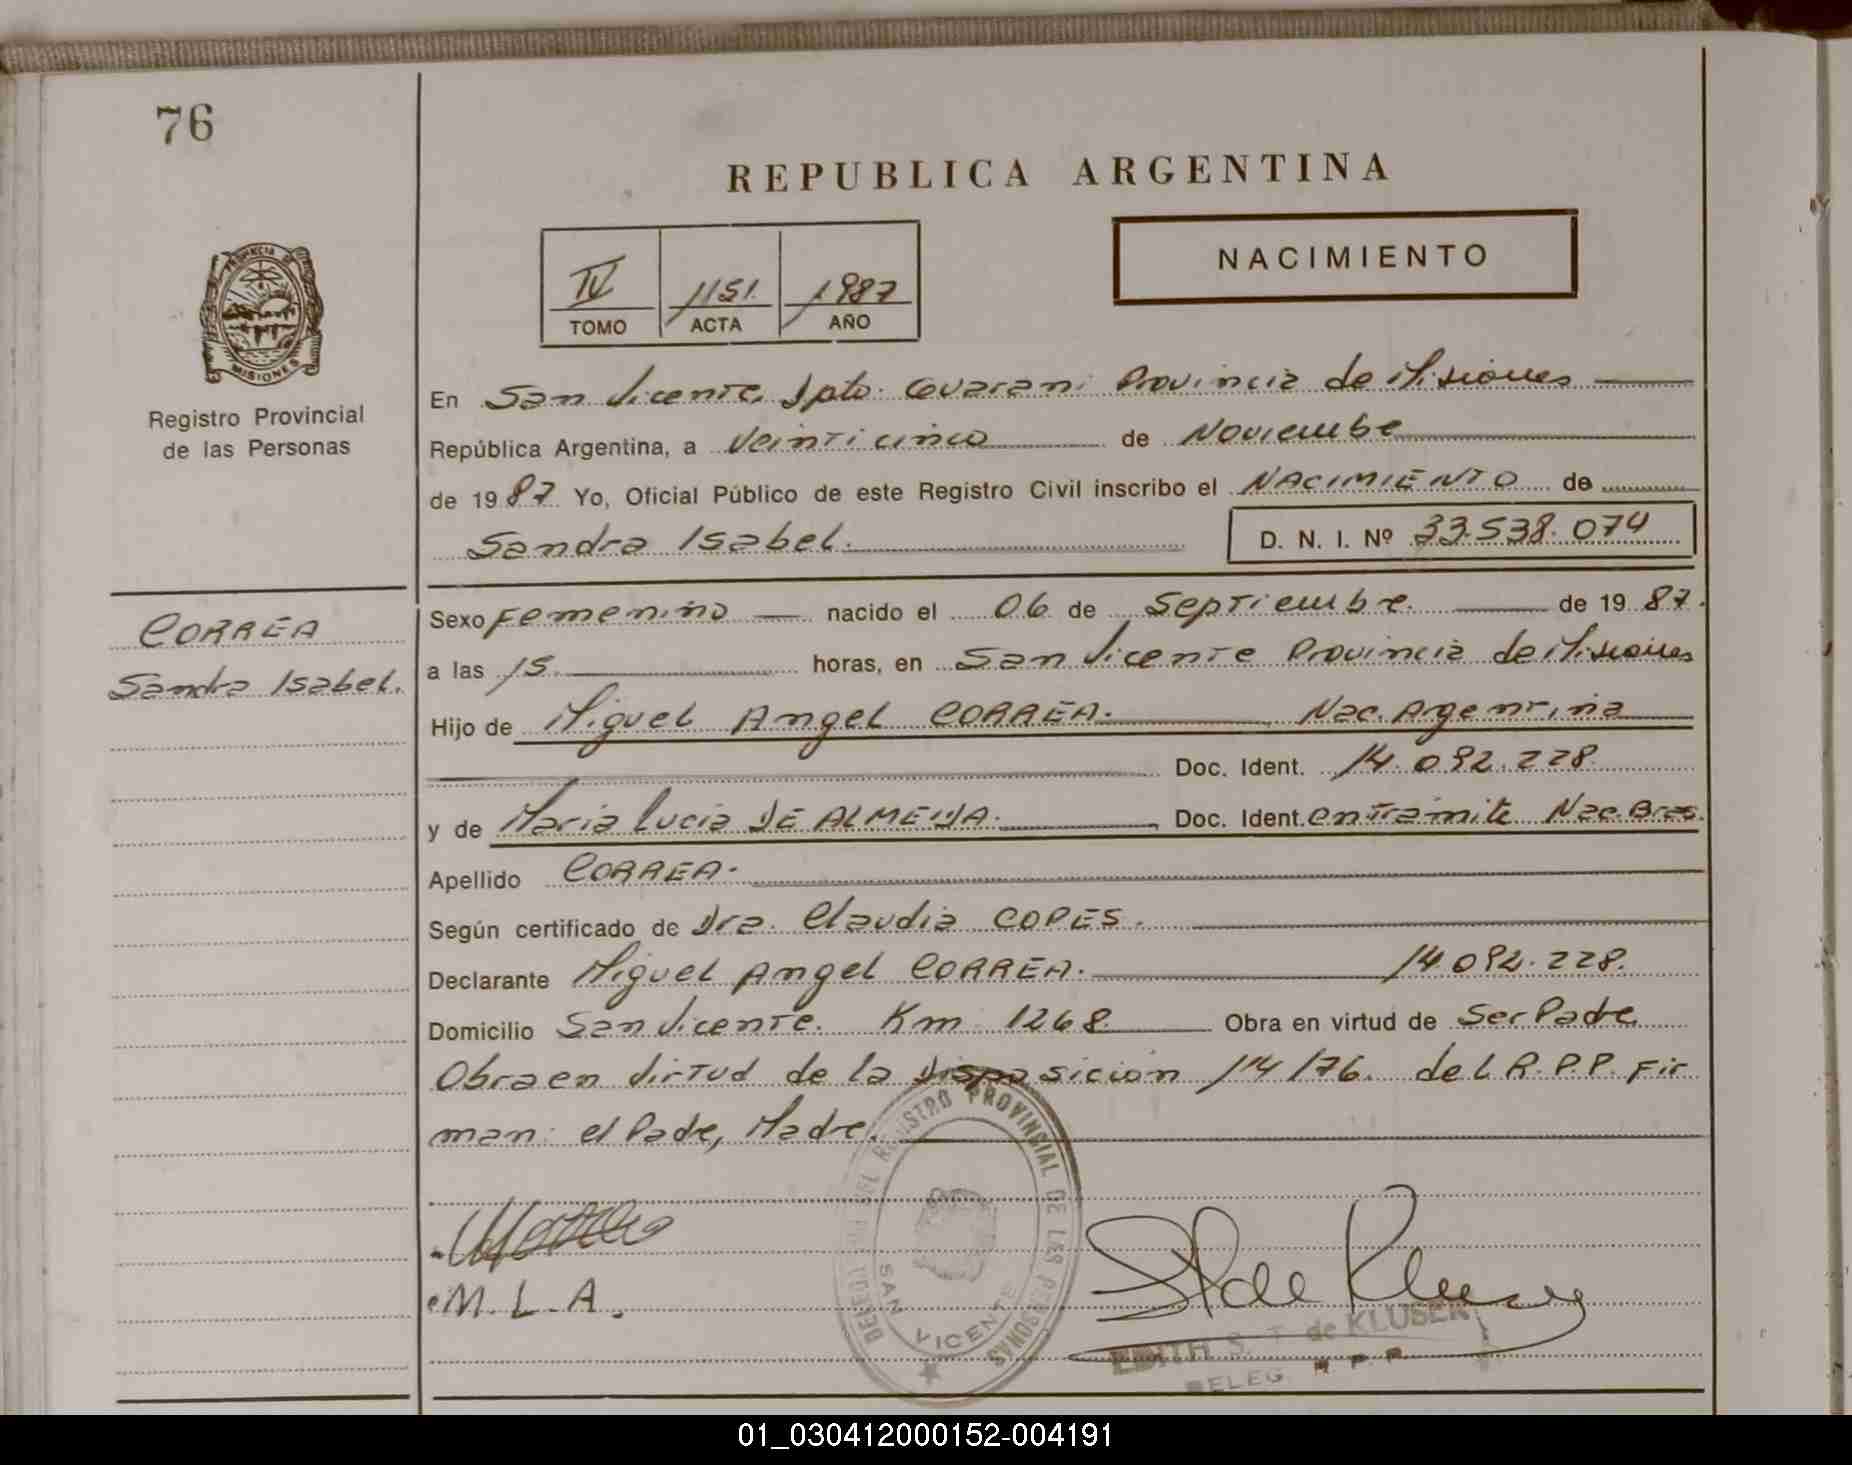 76
REPUBLICA ARGENTINA
NACIMIENTO
IV 1151. 1987
TOMO ACTA AÑO
PROVINCIA D
MISIONES
Registro Provincial
de las Personas
En San Vicente, Dpto. Guarani Provincia de Misiones
República Argentina, a Veinticinco de Noviembre
de 1987 Yo, Oficial Público de este Registro Civil inscribo el NACIMIENTO de
Sandra Isabel. D. N. I. Nº 33.538.074
CORREA
Sandra Isabel.
Sexo Femenino nacido el 06 de Septiembre. de 1987.
a las 15. horas, en San Vicente Provincia de Misiones
Hijo de Miguel Angel CORREA. Nac. Argentina
Doc. Ident. 14.092.228.
y de Maria Lucia DE ALMEIDA. Doc. Ident. en tramite Nac. Bras.
Apellido CORREA.
Según certificado de Dra. Claudia COPES.
Declarante Miguel Angel CORREA. 14.092.228.
Domicilio San Vicente. Km 1268. Obra en virtud de Ser Padre
Obra en Virtud de la Disposición 14/76. del R.P.P. Fir
man: el Padre, Madre.
M. L. A.
REGISTRO PROVINCIAL DE LAS PERSONAS
SAN VICENTE
EDITH S. T. de KLUSER
DELEG. R P P.
01_030412000152-004191